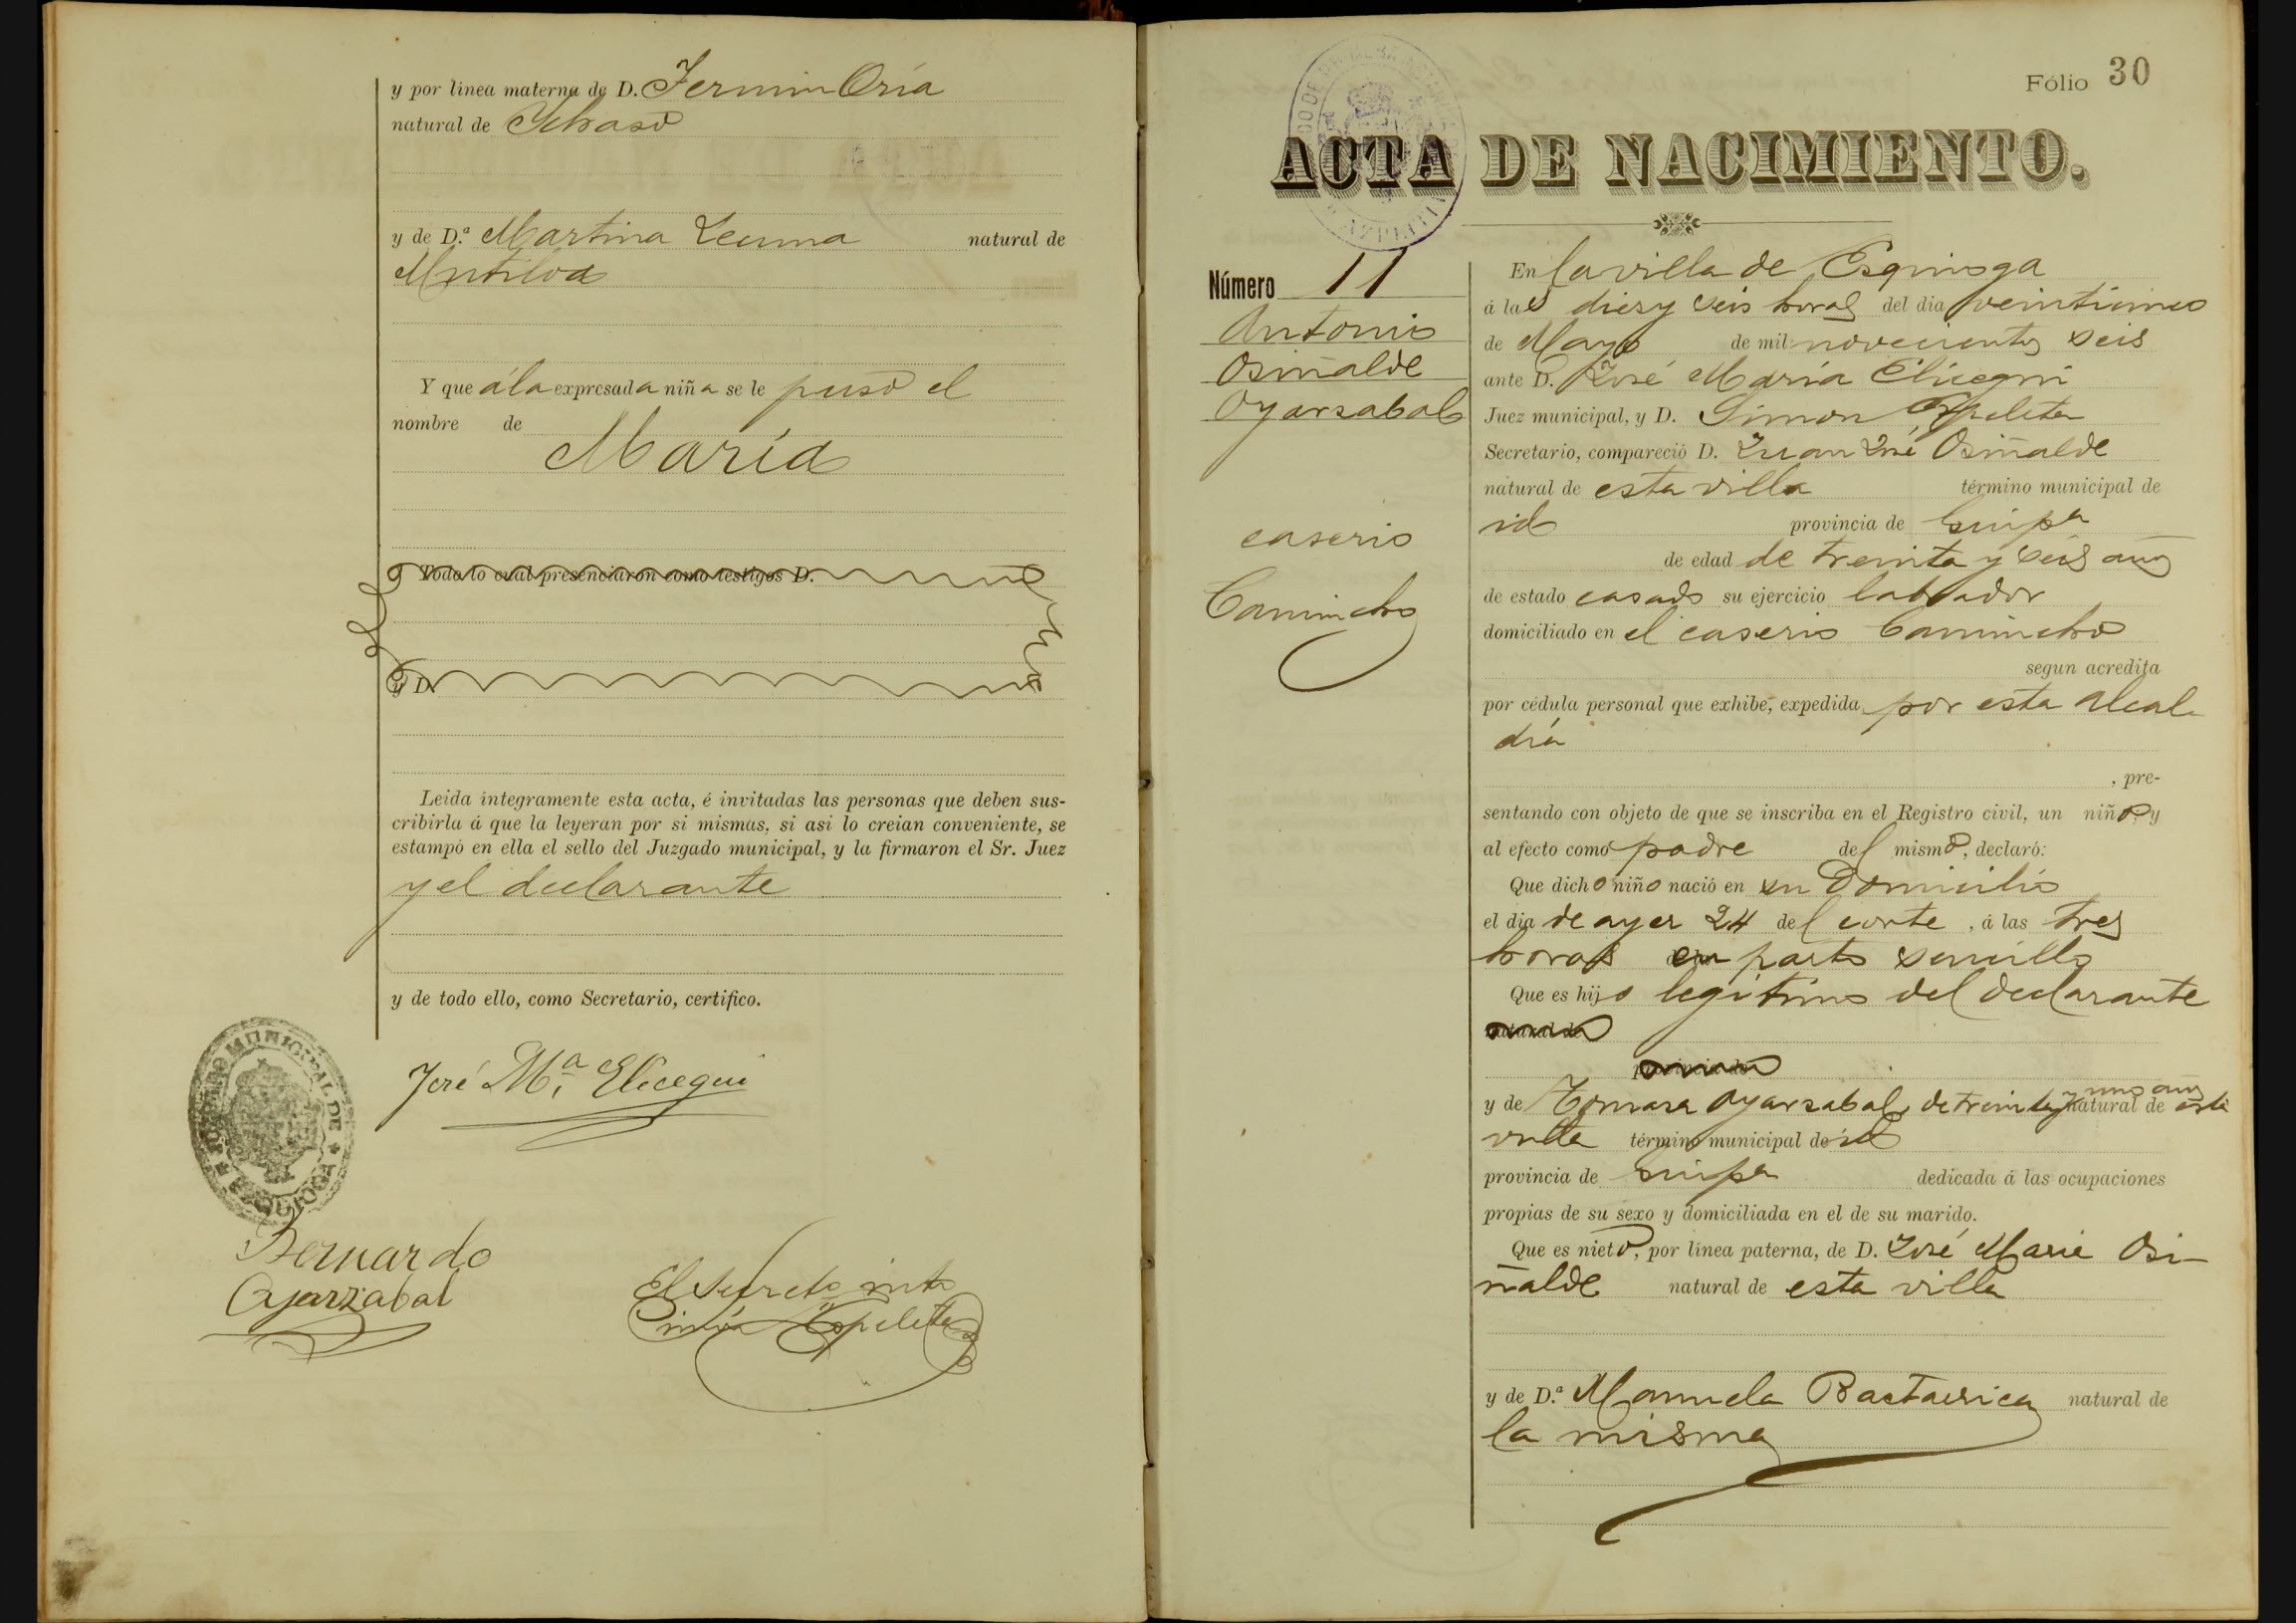 y por linea materna de D. Fermin Oria
natural de Ychaso
y de D.ª Martina Lecuma natural de
Mutiloa
Y que á la expresada niña se le puso el
nombre de
María
Todo lo cual presenciaron como testigos D.
y D.
Leida integramente esta acta, é invitadas las personas que deben sus-
cribirla á que la leyeran por si mismas, si asi lo creian conveniente, se
estampó en ella el sello del Juzgado municipal, y la firmaron el Sr. Juez
y el declarante
y de todo ello, como Secretario, certifico.
JUZGADO MUNICIPAL DE
José M.ª Elicegui
Bernardo
Oyarzabal
El Secreto into
Simón Espeleta
Fólio 30
ACTA DE NACIMIENTO.
Número 11
Antonio
Osiñalde
Oyarzabal
caserio
Camincho
En la villa de Esquioga
á las diez y seis horas del dia veinticinco
de Mayo de mil novecientos seis
ante D. José María Elicegui
Juez municipal, y D. Simon Espeleta
Secretario, compareció D. Juan José Osiñalde
natural de esta villa término municipal de
id provincia de Guipa
de edad de treinta y seis años
de estado casado su ejercicio labrador
domiciliado en el caserio Camincho
segun acredita
por cédula personal que exhibe, expedida por esta Alcal
día
, pre-
sentando con objeto de que se inscriba en el Registro civil, un niño, y
al efecto como padre del mismo, declaró:
Que dicho niño nació en su Domicilio
el dia de ayer 24 del corte, á las tres
horas en parto sencillo
Que es hijo legítimo del declarante
y de Tomasa Oyarzabal, de treinta y uno años natural de esta
villa término municipal de id
provincia de Guipa dedicada á las ocupaciones
propias de su sexo y domiciliada en el de su marido.
Que es nieto, por línea paterna, de D. José Maria Osi-
ñalde natural de esta villa
y de D.ª Manuela Bastarrica natural de
la misma